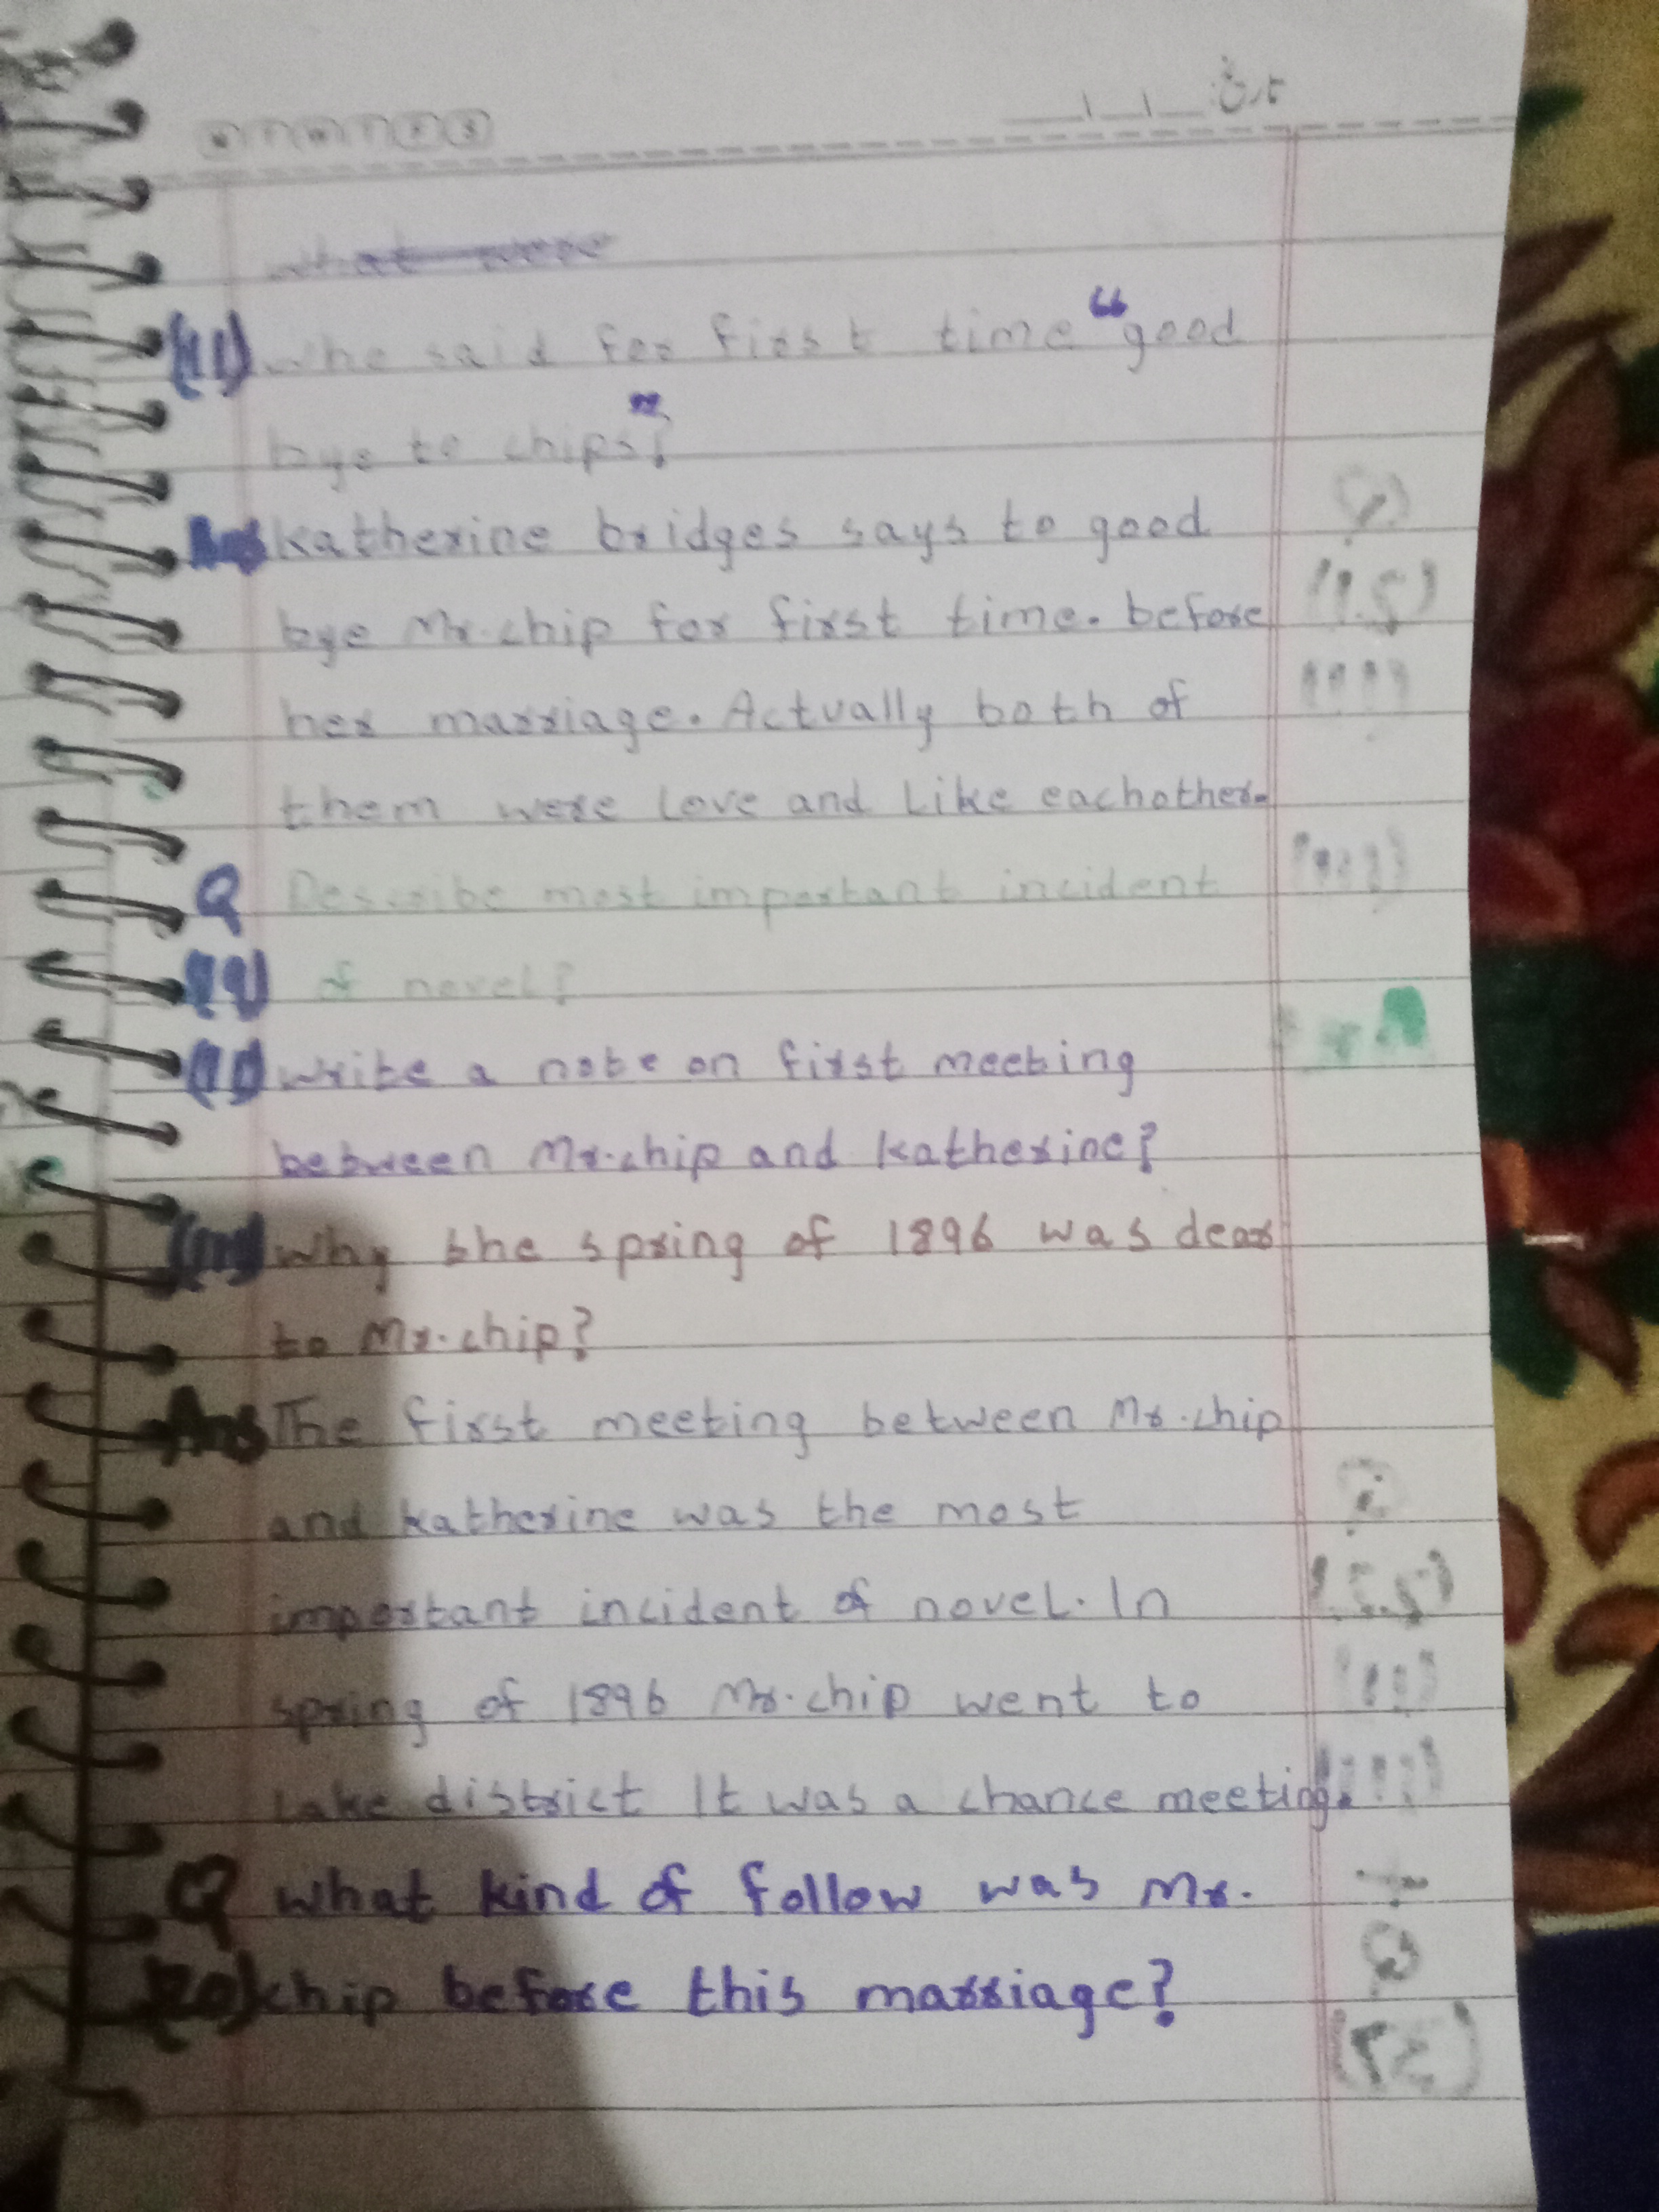 تاریخ:
what were
(11) who said for first time "good
bye to chips"?
Ans Katherine bridges says to good
bye Mr.chip for first time. before
her marriage. Actually both of
them were love and Like eachother.
Q Describe most important incident
(19) of novel?
(11) write a note on first meeting
between Mr.chip and Katherine?
(111) Why the spring of 1896 was dear
to Mr.chip?
Ans The first meeting between Mr.chip
and Katherine was the most
important incident of novel. In
spring of 1896 Mr.chip went to
Lake district It was a chance meeting.
Q what kind of follow was Mr.
(20) chip before this marriage?